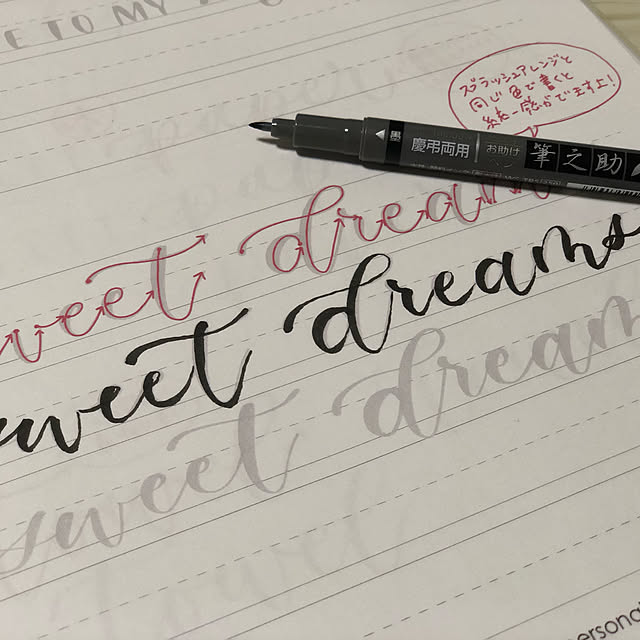 E TO MY
スプラッシュアレンジと
同じ色で書くと
統一感がでますよ!
慶弔両用 お助け 筆之助
黒
weet dream
sweet dreams
sweet dream
personal